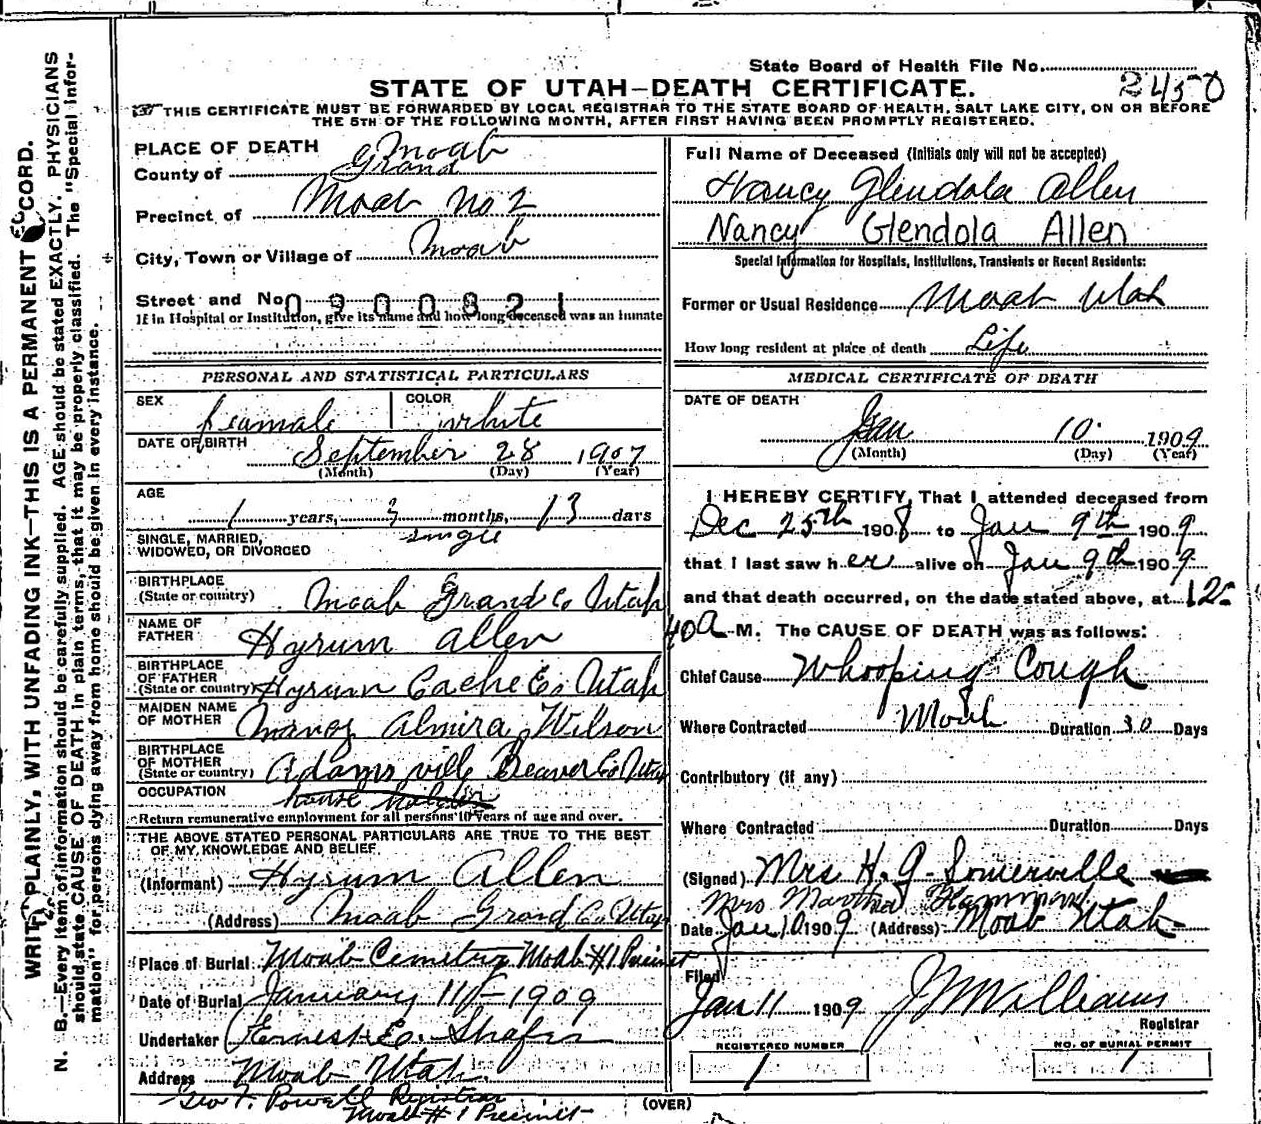 State Board of Health File No.
2450
STATE OF UTAH—DEATH CERTIFICATE.
THIS CERTIFICATE MUST BE FORWARDED BY LOCAL REGISTRAR TO THE STATE BOARD OF HEALTH, SALT LAKE CITY, ON OR BEFORE
THE 5TH OF THE FOLLOWING MONTH, AFTER FIRST HAVING BEEN PROMPTLY REGISTERED.
WRITE PLAINLY, WITH UNFADING INK—THIS IS A PERMANENT RECORD.
N. B.—Every item of information should be carefully supplied. AGE should be stated EXACTLY. PHYSICIANS
should state CAUSE OF DEATH in plain terms, that it may be properly classified. The "Special Infor-
mation" for persons dying away from home should be given in every instance.
PLACE OF DEATH Moab
County of Grand
Precinct of Moab No 2
City, Town or Village of Moab
Street and No.
0900821
If in Hospital or Institution, give its name and how long deceased was an inmate
PERSONAL AND STATISTICAL PARTICULARS
SEX feamale COLOR white
DATE OF BIRTH September 28 1907
(Month) (Day) (Year)
AGE
1 years, 3 months, 13 days
SINGLE, MARRIED,
WIDOWED, OR DIVORCED
single
BIRTHPLACE
(State or country) Moab Grand Co Utah
NAME OF
FATHER Hyrum Allen
BIRTHPLACE
OF FATHER
(State or country) Hyrum Cache Co Utah
MAIDEN NAME
OF MOTHER Almira Wilson
BIRTHPLACE
OF MOTHER
(State or country) Adamsville Beaver Co Utah
OCCUPATION
Return remunerative employment for all persons 10 years of age and over.
THE ABOVE STATED PERSONAL PARTICULARS ARE TRUE TO THE BEST
OF MY KNOWLEDGE AND BELIEF.
(Informant) Hyrum Allen
(Address) Moab Grand Co Utah
Place of Burial Moab Cemetery Moab #1 Precinct
Date of Burial January 11th 1909
Undertaker Ernest E. Shafer
Address Moab Utah
Geo F. Powell Registrar
Moab #1 Precinct
Full Name of Deceased (Initials only will not be accepted)
Nancy Glendola Allen
Nancy Glendola Allen
Special Information for Hospitals, Institutions, Transients or Recent Residents:
Former or Usual Residence Moab Utah
How long resident at place of death Life
MEDICAL CERTIFICATE OF DEATH
DATE OF DEATH
Jan 10 1909
(Month) (Day) (Year)
I HEREBY CERTIFY, That I attended deceased from
Dec 25th 1908 to Jan 9th 1909
that I last saw her alive on Jan 9th 1909
and that death occurred, on the date stated above, at 12
40 A M. The CAUSE OF DEATH was as follows:
Chief Cause Whooping Cough
Where Contracted Moab Duration 30 Days
Contributory (if any)
Where Contracted Duration Days
(Signed) Mrs H. G. Somerville
Mrs Martha Hammond
Date Jan 10 1909 (Address) Moab Utah
Filed
Jan 11 1909 J M Williams
Registrar
REGISTERED NUMBER
1
NO. OF BURIAL PERMIT
1
(OVER)